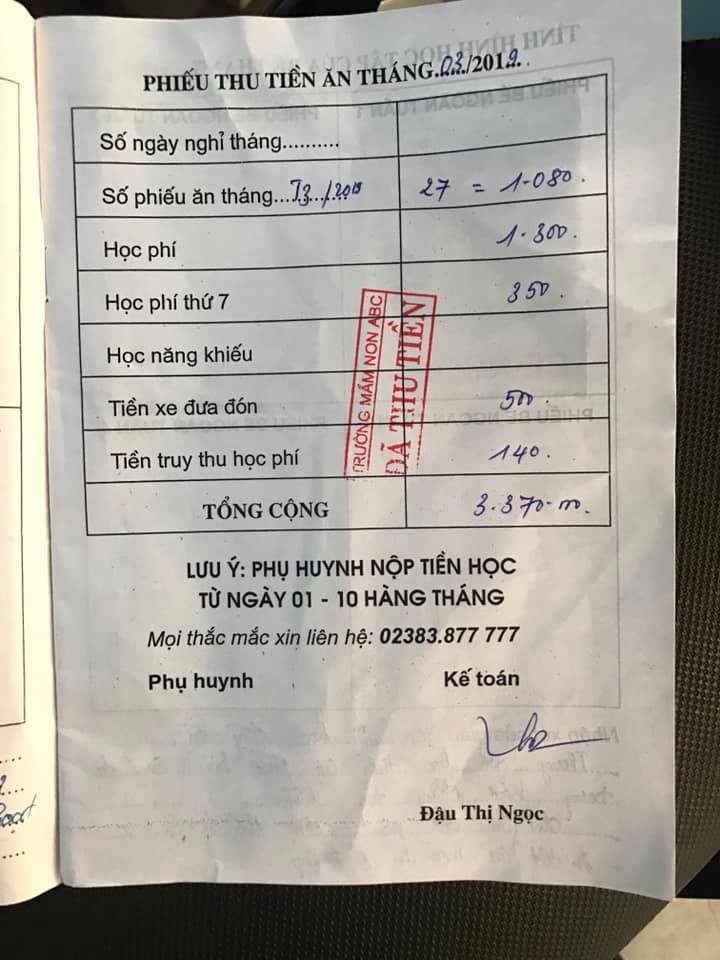 PHIẾU THU TIỀN ĂN THÁNG.03./2019.
Số ngày nghỉ tháng..........
Số phiếu ăn tháng...T3.../2019 27 = 1.080.
Học phí 1.300.
Học phí thứ 7 350.
Học năng khiếu
Tiền xe đưa đón 500.
Tiền truy thu học phí 140.
TỔNG CỘNG 3.370.m.
TRƯỜNG MẦM NON ABC
ĐÃ THU TIỀN
LƯU Ý: PHỤ HUYNH NỘP TIỀN HỌC
TỪ NGÀY 01 - 10 HÀNG THÁNG
Mọi thắc mắc xin liên hệ: 02383.877 777
Phụ huynh Kế toán
Đậu Thị Ngọc